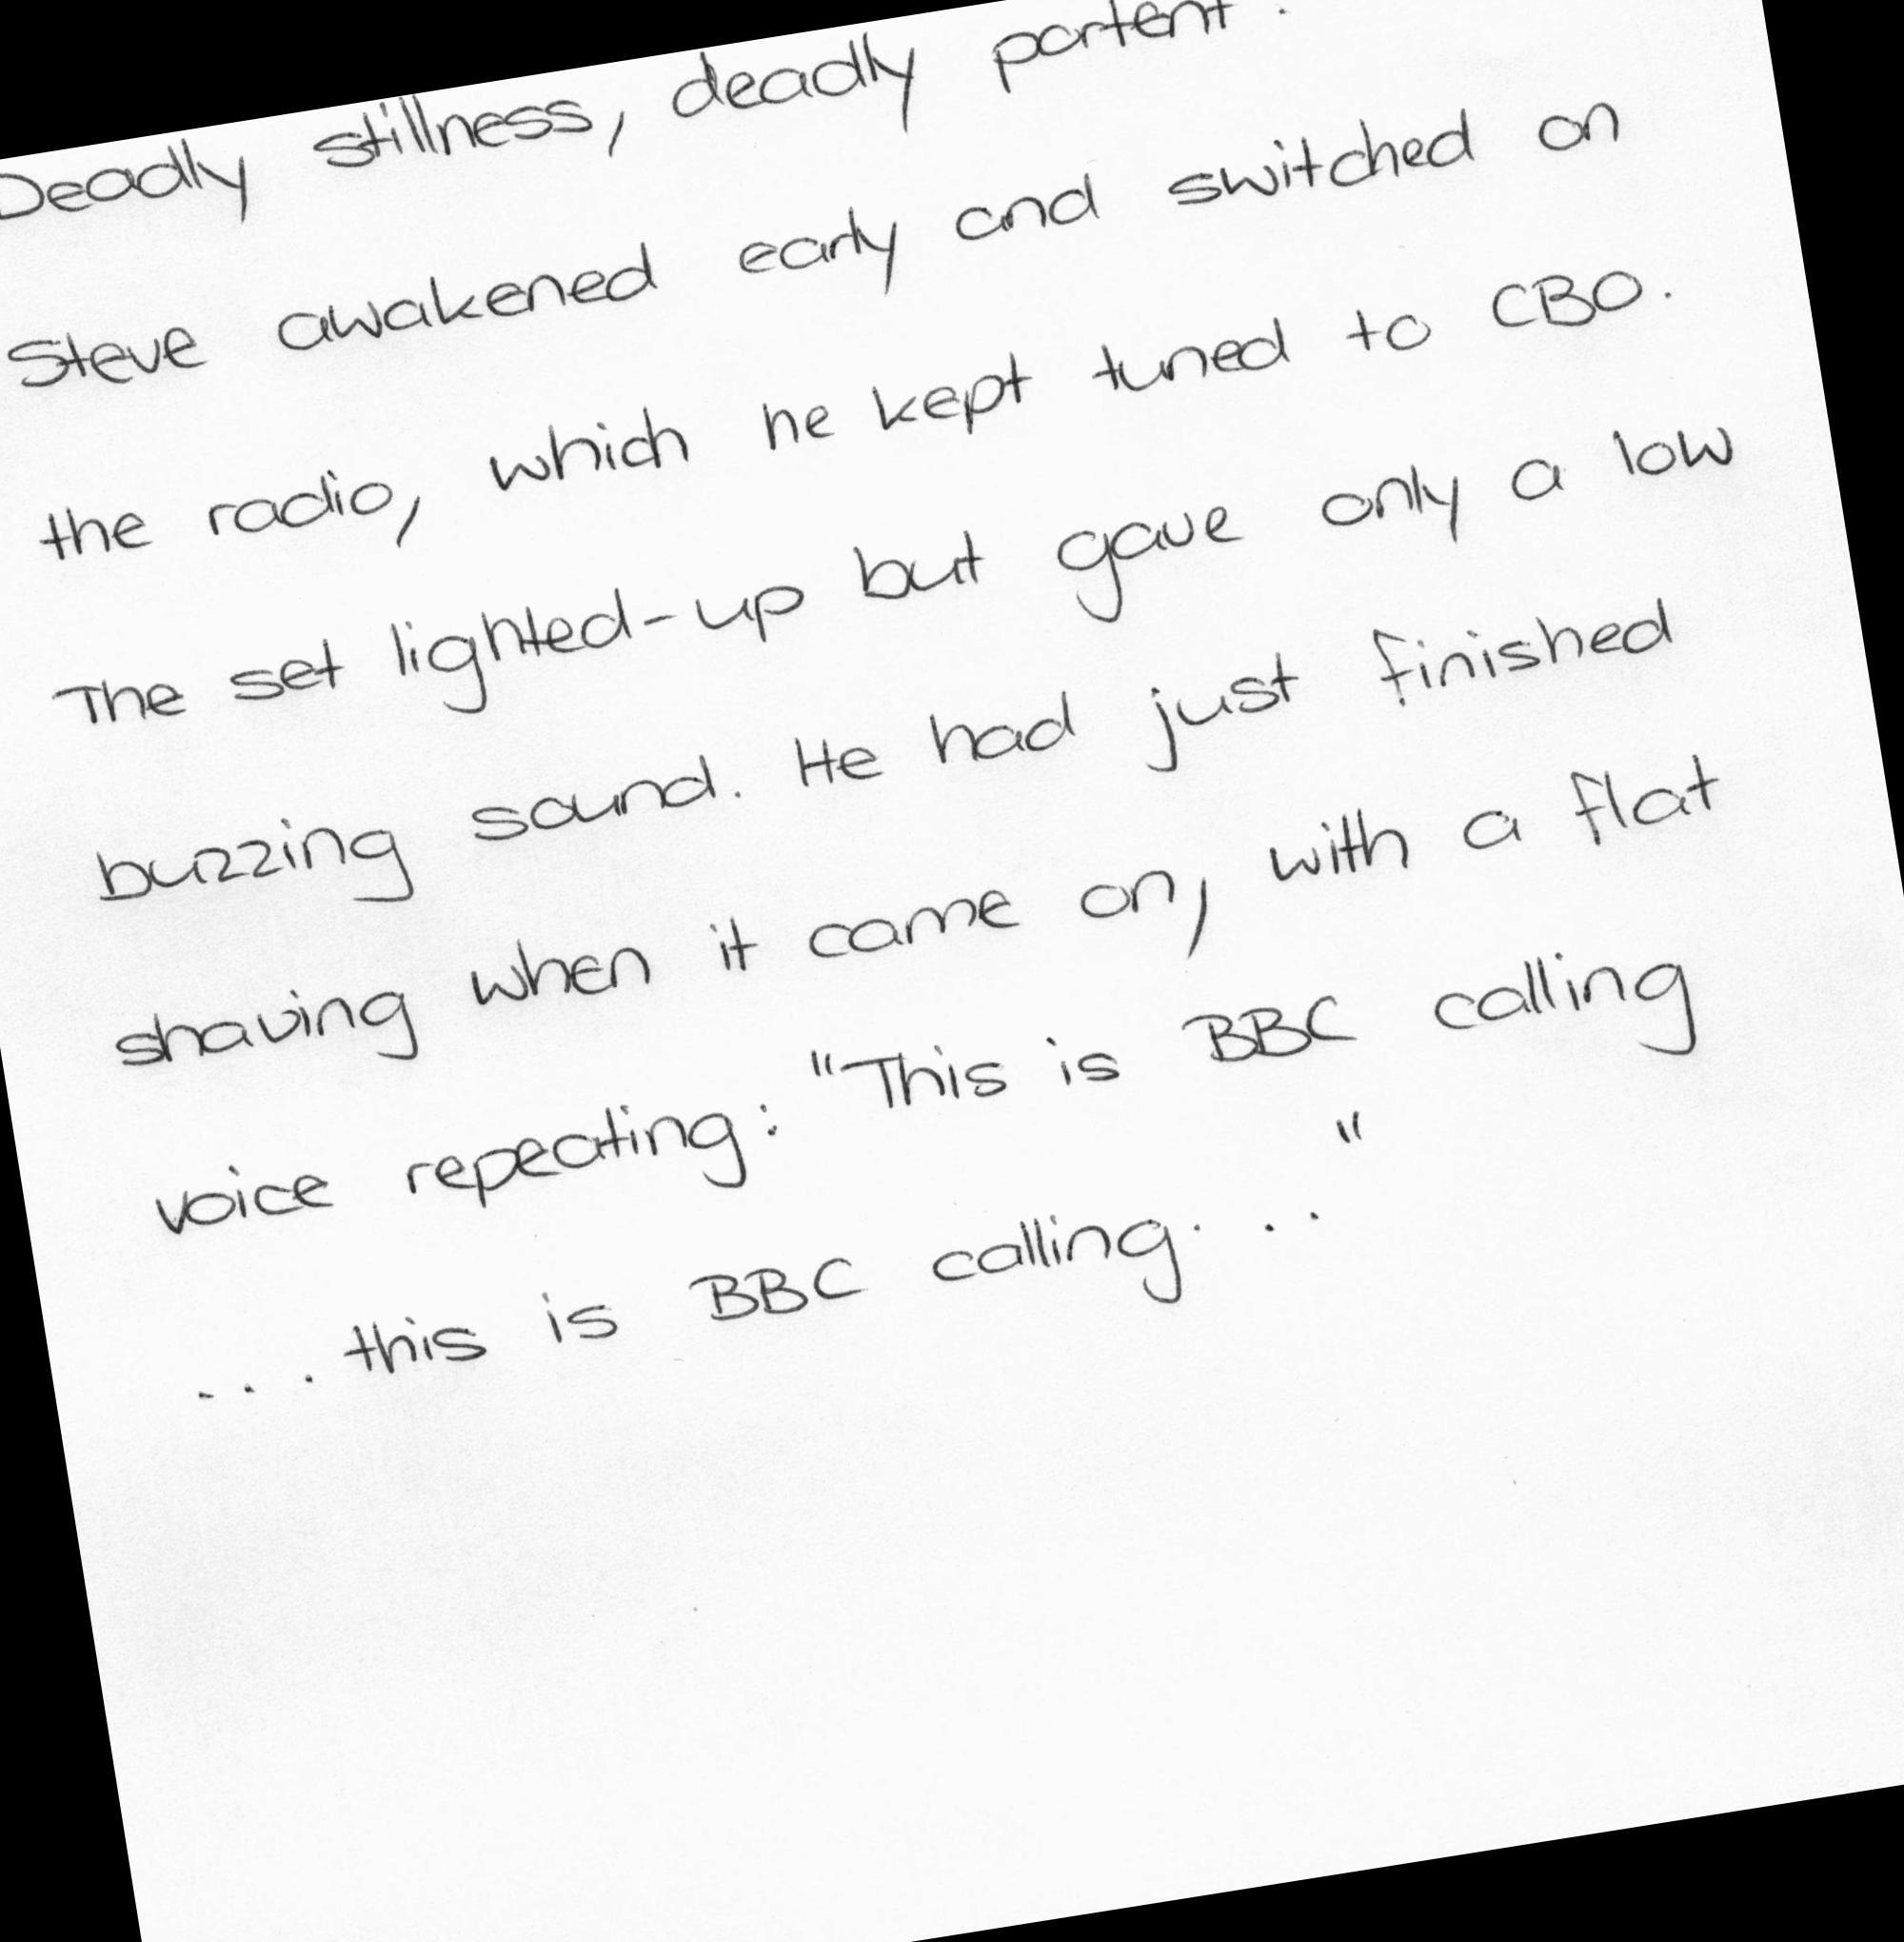 Deadly stillness, deadly portent.
Steve awakened early and switched on
the radio, which he kept tuned to CBO.
The set lighted-up but gave only a low
buzzing sound. He had just finished
shaving when it came on, with a flat
voice repeating: "This is BBC calling
...this is BBC calling..."